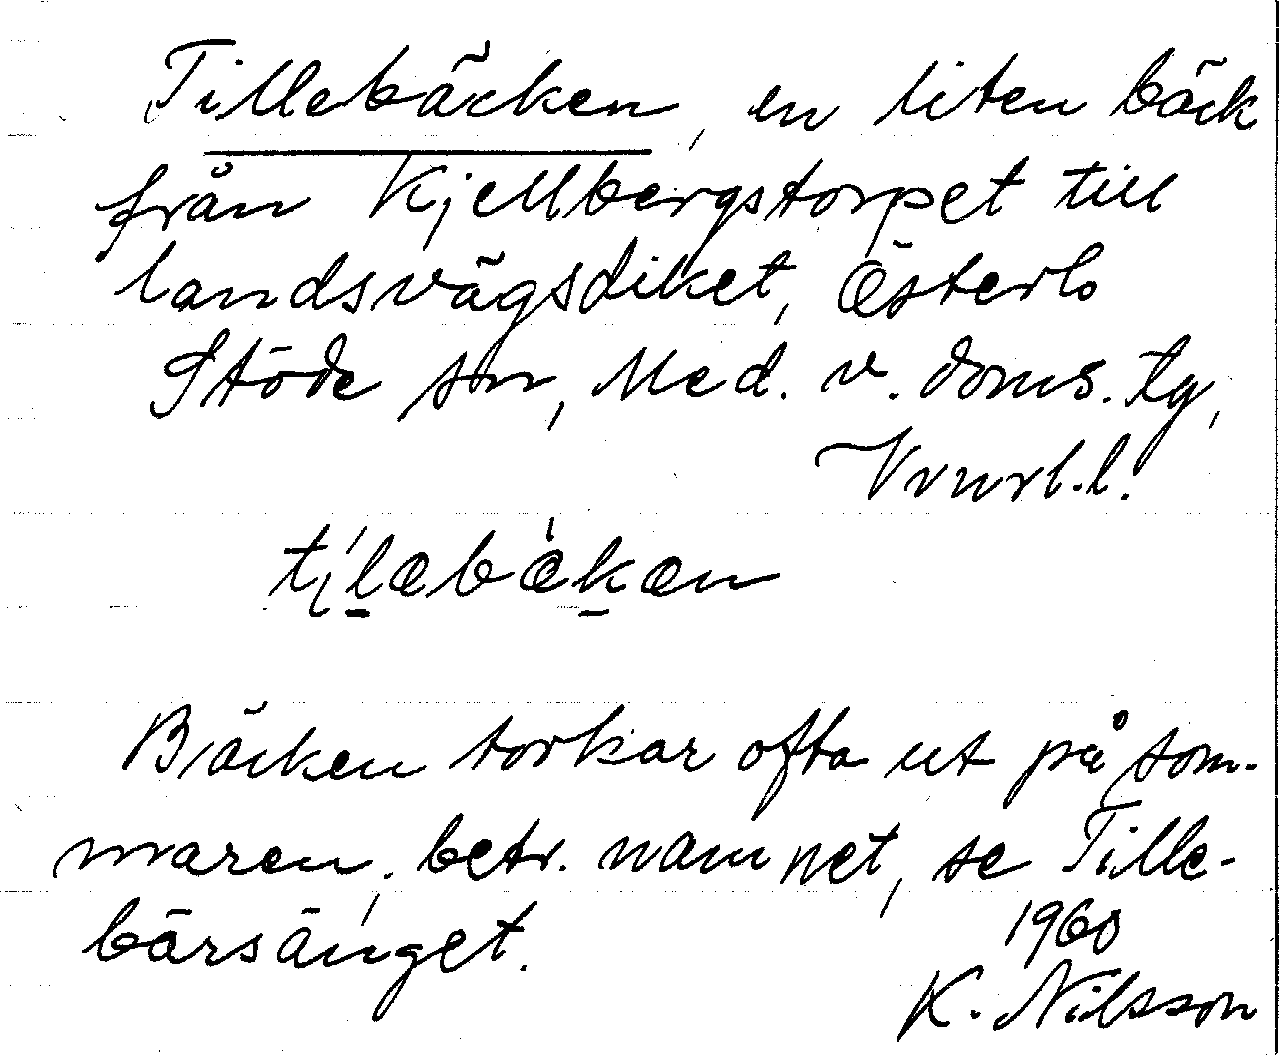 Tillebäcken, en liten bäck
från Kjellbergstorpet till
landsvägsdiket, Österlo
Stöde sn, Med. v. doms. tg,
Vvnrl.l.
Bäcken torkar ofta ut på som-
maren; betr. namnet, se Tille-
bärsänget.
1960
K. Nilsson